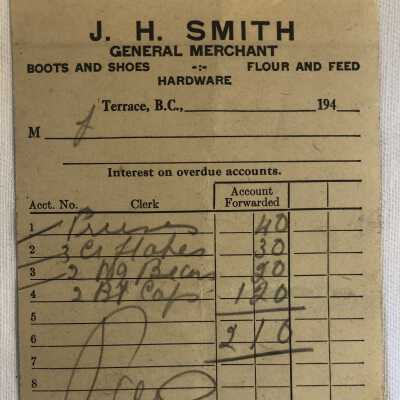 J. H. SMITH
GENERAL MERCHANT
BOOTS AND SHOES -:- FLOUR AND FEED
HARDWARE
Terrace, B.C., 194
M
Interest on overdue accounts.
Acct. No. Clerk Account Forwarded
1 Prunes 40
2 3 Cr flakes 30
3 2 20
4 2 120
5
6 210
7
8